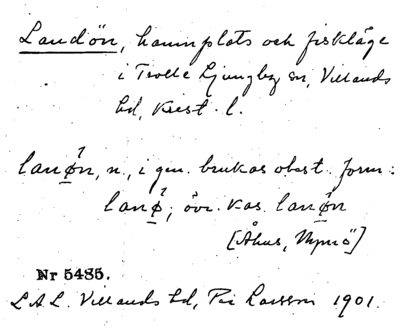 Landön, hamnplats och fiskläge
i Trolle Ljungby sn, Villands
hd, Krist. l.
lanǿ̱n, n., i gen. brukas obest. form:
lanǿ̱; övr. kas. lanǿ̱n
[Åhus, Nymö]
Nr 5485.
L.A.L. Villands hd, Per Larsson 1901.